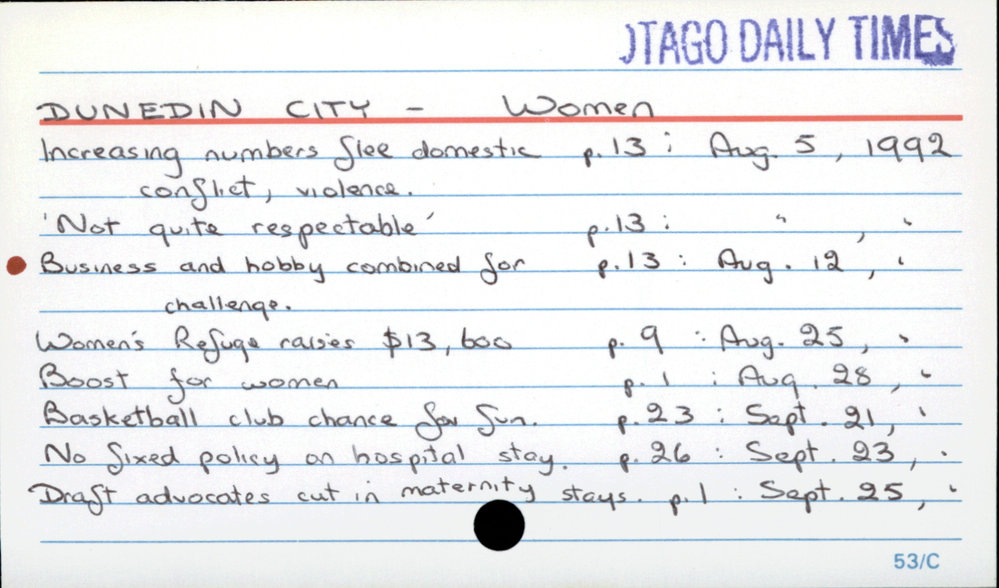 OTAGO DAILY TIMES
DUNEDIN CITY - Women
Increasing numbers flee domestic p.13 : Aug. 5, 1992
conflict, violence.
'Not quite respectable' p.13 : " , "
Business and hobby combined for p.13 : Aug. 12, "
challenge.
Women's Refuge raises $13,600 p. 9 : Aug. 25, "
Boost for women p. 1 : Aug. 28, "
Basketball club chance for fun. p.23 : Sept. 21, "
No fixed policy on hospital stay. p.26 : Sept. 23, "
Draft advocates cut in maternity stays. p.1 : Sept. 25, "
53/C